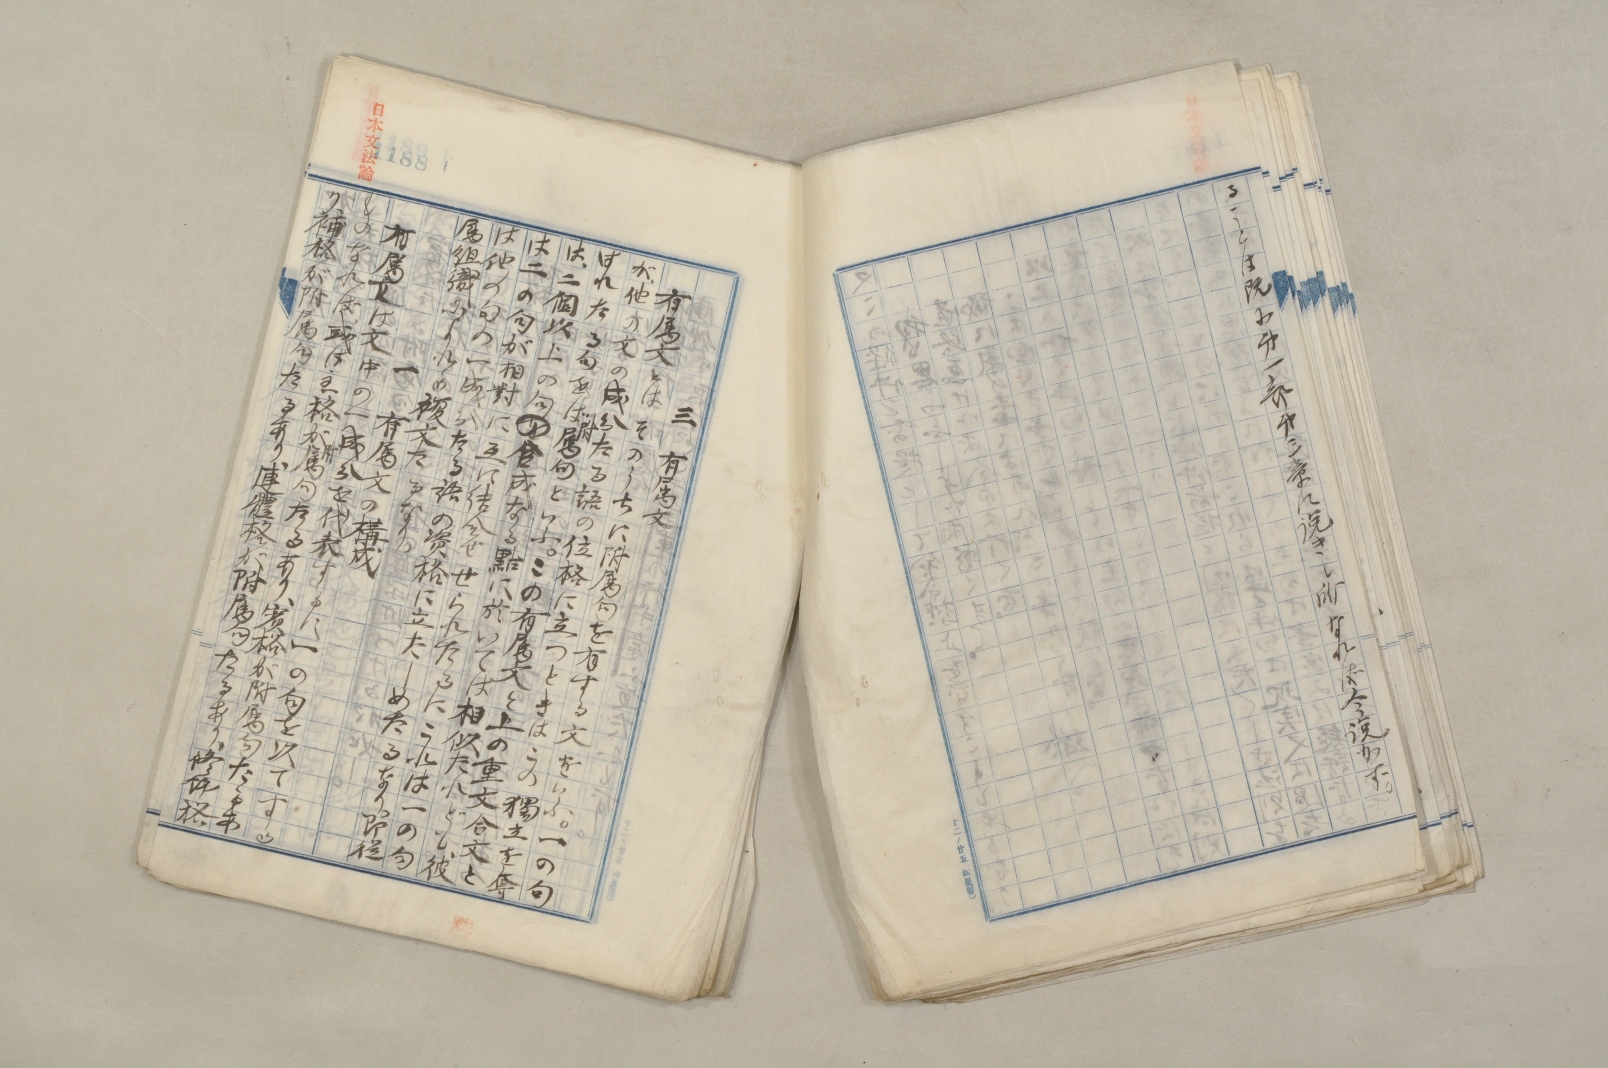 ることは既に第一部第三章に説きし所なれば今説かず。
日本文法論
1188
三 有属文
有属文とはそのうちに附属句を有する文をいふ。一の句
が他の文の成分たる語の位格に立つときはこの獨立を奪
はれたる句をば附属句といふ。この有属文と上の重文合文と
は、二個以上の句の合成なる點に於いては相似たれども、彼
は二の句が相對に互に結合せられたるにこれは一の句
は他の句の一成分たる語の資格に立たしめたるなり。即従
属組織によれる複文たるなり
一 有属文の構成
有属文は文中の一成分を代表するに一の句を以てする
ものなれば或は主格が附属句たるあり、賓格が附属句たるあ
り、補格が附属句たるあり、連體格が附属句たるあり、修飾格